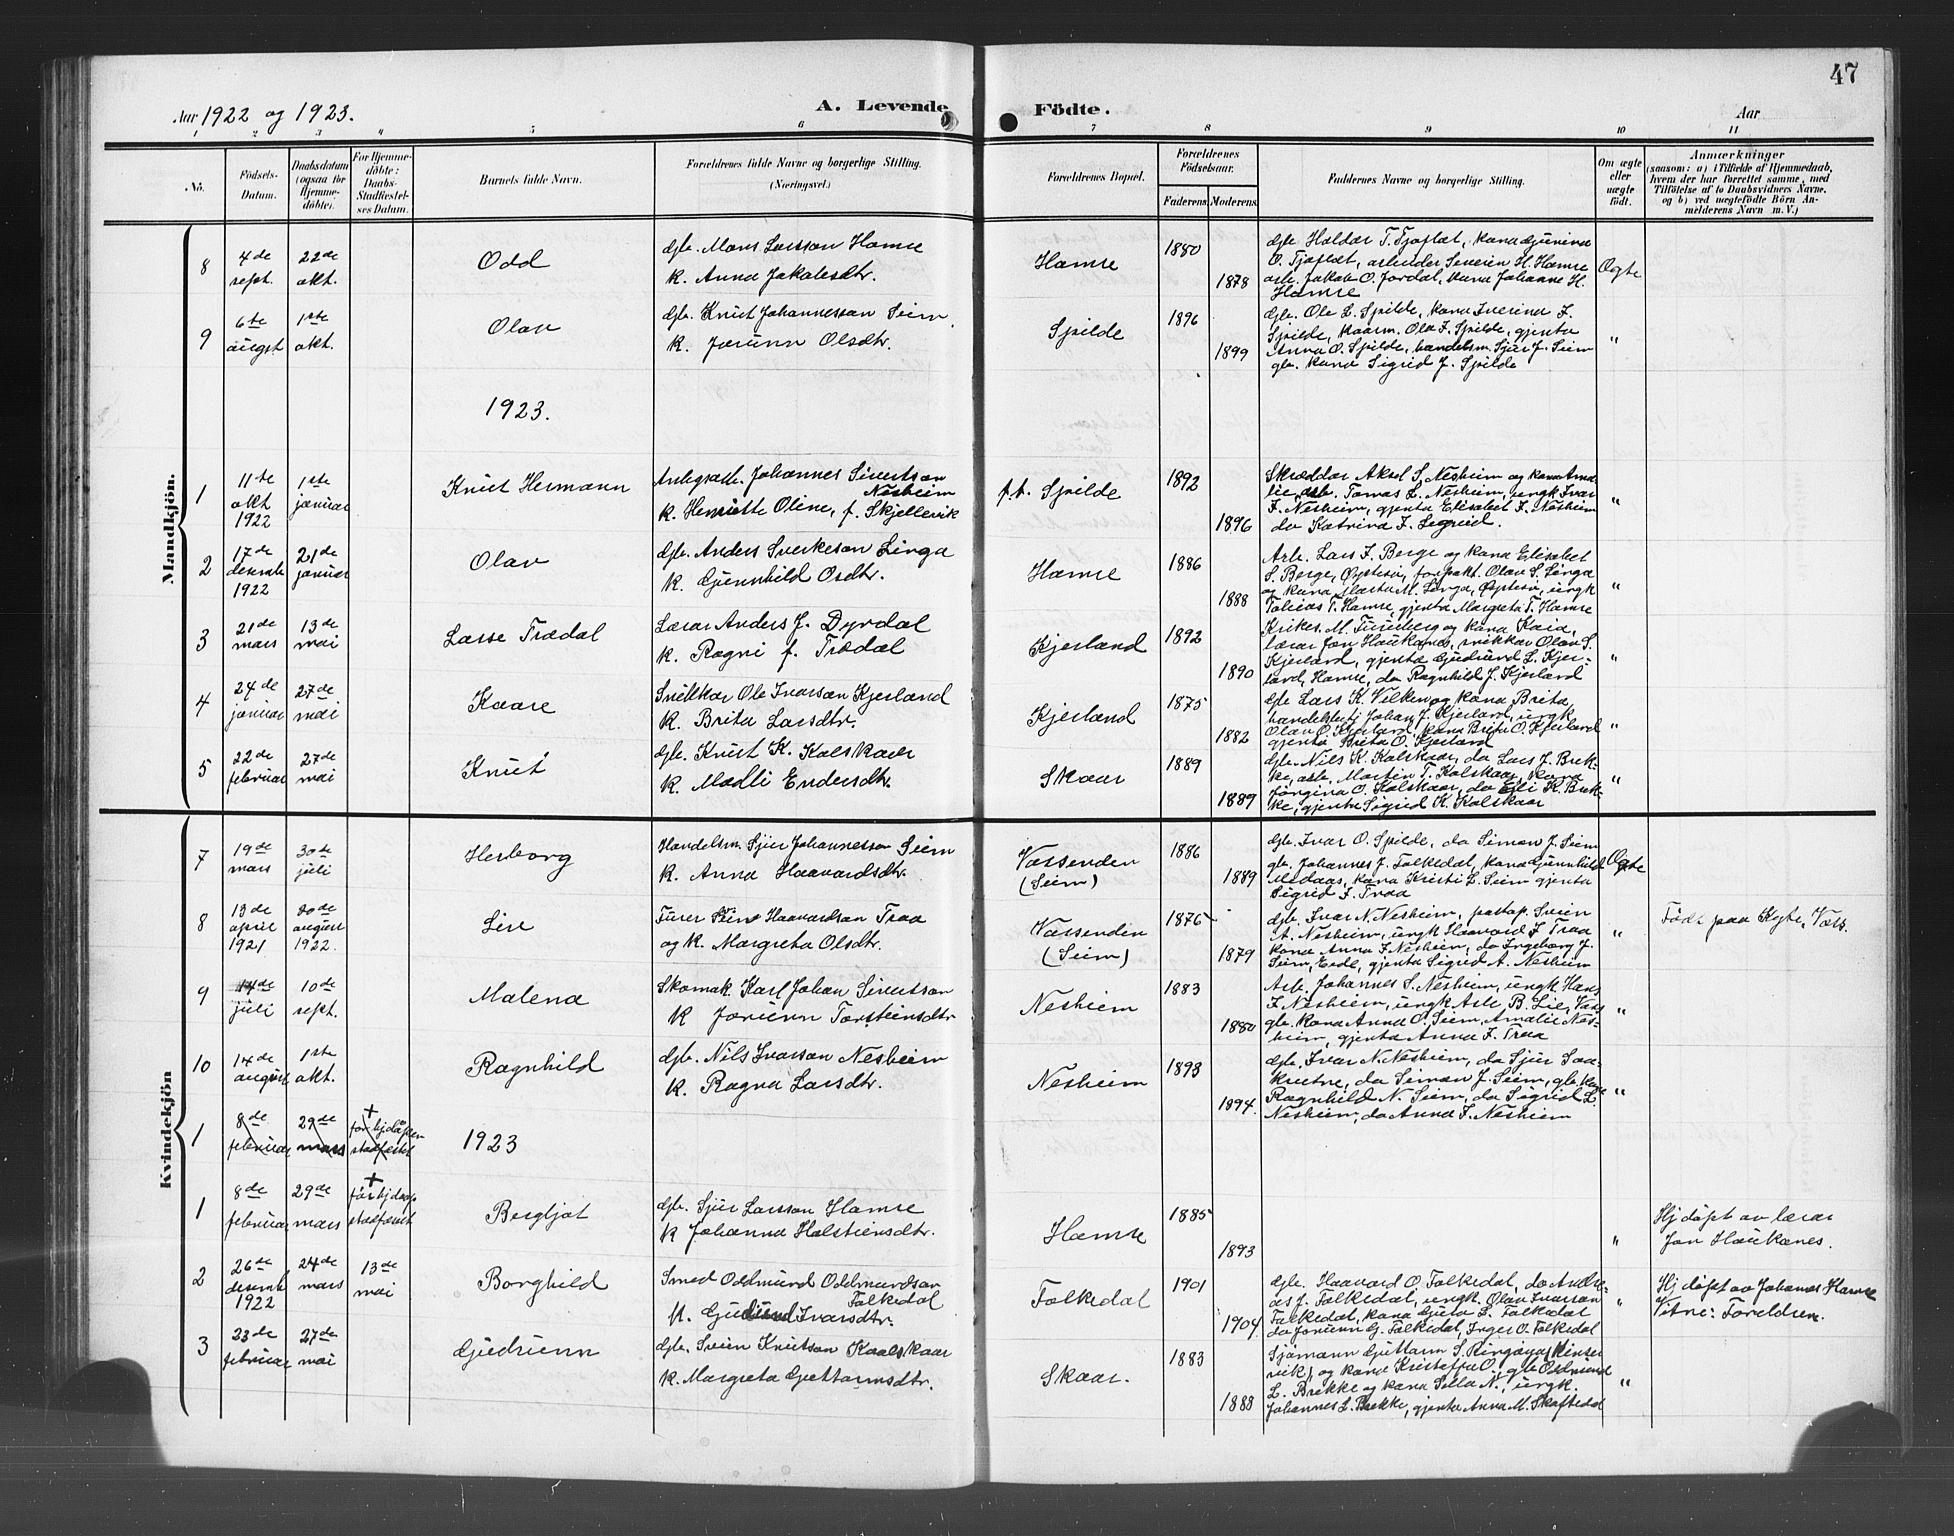 47
Aar 1922 og 1923.
A. Levende Födte.
Aar
1 2 3 4 5 6 7 8 9 10 11
No.
Födsels-Datum.
Daabsdatum (ogsaa for Hjemme-döbte).
For Hjemme-döbte: Daabs-Stadfæstel-ses Datum.
Barnets fulde Navn.
Forældrenes fulde Navne og borgerlige Stilling.
(Næringsvei.)
Forældrenes Bopæl.
Forældrenes Födselsaar.
Faderens. Moderens.
Faddernes Navne og borgerlige Stilling.
Om ægte eller uægte födt.
Anmærkninger
(saasom: a) i Tilfælde af Hjemmedaab,
hvem der har forrettet samme, med
Tilföielse af to Daabsvidners Navne.
og b) ved uægtefödte Börn An-
melderens Navn m. V.)
Mandkjön.
8 4de sept. 22de okt. Odd
gb. Mons Larsson Hamre
k. Anna Jakobsdtr.
Hamre 1880 1878
gb. Haldor T. Tjoflot, kona Gunina
O. Tjoflot, arbeider Severin H. Hamre
arb. Jakob O. Jordal, kona Johanne H.
Hamre
Ogte
9 6te august 1ste okt. Olav
gb. Knut Johannesson Seim
k. Jorunn Olsdtr.
Spilde 1896 1899
gb. Ole L. Spilde, kona Iverina J.
Spilde, kaarm. Ola J. Spilde, gjenta
Anna O. Spilde, handelsm. Sjur J. Seim
gb. kona Sigrid J. Spilde
"
1923.
1 11te okt 1922 1ste januar Knut Hermann
Anlegsarb. Johannes Sivertson
Nesheim
k. Henriette Oline, f. Skjellevik
p.t. Spilde 1892 1896
Skræddar Aksel S. Nesheim og kona Ama-
lie, arb. Tomas L. Nesheim, ungk Ivar
J. Nesheim, gjenta Elisabet J. Nesheim
do Katrina J. Segreid.
"
2 17de desemb 1922 21de januar Olav
gb. Anders Sverkeson Linga
k. Gunnhild Osdtr.
Hamre 1886 1888
Arb. Lars J. Berge og kona Elisabet
S. Berge, Øystesø, forpakt. Olav S. Linga
og kona Marta M. Linga, Øystesø, ungk
Tobias T. Hamre, gjenta Margreta T. Hamre
"
3 21de mars 13de mai Lasse Trædal
Lærar Anders J. Dyrdal
k. Ragni f. Trædal
Kjerland 1892 1890
Krikes. M. Tuneberg og kona Kaia,
lærar Jon Haukanes, snikkar Olav S.
Kjerland, gjenta Gudrund L. Kjer-
land, Hamre, do Ragnhild J. Kjerland
"
4 24de januar 27de mai Kaare
Snikkar Ole Ivarson Kjerland
k. Brita Larsdtr.
Kjerland 1875 1882
gb Lars K. Vilken og kona Brita,
handelsbetj Johan J. Kjerland, ungk
Olav O. Kjerland, kona Brita O. Kjerland
gjenta Brita O. Kjerland
"
5 22de februar 27de mai Knut
gb. Knut K. Kolskaar
k. Madli Endersdtr.
Skaar 1889 1889
gb. Nils K. Kolskaar, do Lars J. Brek-
ke, arb. Martin T. Kolskaar, kona
Jørgina O. Kolskaar, do Eli K. Brek-
ke, gjenta Sigrid K. Kolskaar
"
Kvindekjön
7 19de mars 30te juli Herborg
Handelsm. Sjur Johannesson Seim
k. Anna Haavardsdtr.
Vassenden
(Seim)
1886 1889
gb. Ivar O. Spilde, do Simon J. Seim
gb. Johannes J. Folkedal, kona Gunnhild
Medaas, kona Kristi L. Seim gjenta
Sigrid J. Traa
Ogte
8 13de april 1921 20de august 1922. Liv
Furer Svein Haavardson Traa
og k. Margreta Olsdtr.
Vassenden
(Seim)
1876 1879
gb. Ivar N. Nesheim, postop. Svein
A. Nesheim, ungk Haavard J Traa
kona Anna J. Nesheim, do Ingeborg J.
Seim, Eide, gjenta Sigrid A. Nesheim
"
Født paa Kyte, Voss.
9 14de juli 10de sept. Malena
Skomak. Karl Johan Sivertson
k Jorunn Torsteinsdtr
Nesheim 1883 1880
Arb. Johannes S. Nesheim, ungk Hans
J. Nesheim, ungk Asle B. Lie, Voss
gb. kona Anna O. Seim, Amalie Nes-
heim, gjenta Anna J. Traa
"
10 14de august 1ste okt. Ragnhild
gb. Nils Ivarson Nesheim
k. Ragna Larsdtr.
Nesheim 1893 1894.
gb. Ivar N. Nesheim, do Sjur Saa-
kvitne, do Simon J. Seim, gb. kona
Ragnhild N. Seim, do Sigrid L.
Nesheim, do Anna J. Nesheim
"
1 8de februar 29de mars + for hjdåpen stadfæstet
1923
1 8de februar 29de mars + for hjdaap stadfæst Bergljot
gb. Sjur Larsson Hamre
k Johanna Holsteinsdtr.
Hamre 1885 1893
"
Hjdøpt av lærar
Jon Haukanes.
2 26de desemb 1922 24de mars 13de mai Borghild
Smed Oddmund Oddmundson
Folkedal
k. Gudrund Ivarsdtr.
Folkedal 1901 1904
gb. Haavard O. Folkedal, do Andre-
as J. Folkedal, ungk. Olav Ivarson
Folkedal, kona Guro L. Folkedal
do Jorunn G. Folkedal, Inger O. Folkedal
"
Hj døpt av Johannes Hamre
Vitne: Foreldren.
3 23de februar 27de mai Gudrunn
gb. Svein Knutson Kaalskaar
k. Margreta Guttormsdtr.
Skaar. 1883 1888
Sjømann Guttorm S. Ringøya, Kinser-
vik, og kona Kristoffa O., gb Odmund
L. Brekke og kona Silla N., ungk.
Johannes L. Brekke, gjenta Anna M. Skaftedal
"